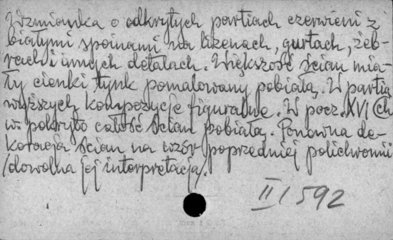 o odkrytych partiach czerwieni z
białymi spoinami na trzonach, gurtach, żeb-
rach i innych detalach. Większość ścian mia-
ły cienki tynk pomalowany pobiałą. W partia
wyższych kompozycje figuralne. W pocz. XVI Ch
w. pokryto całość ścian pobiałą. Ponowna de-
koracja ścian na wzór poprzedniej polichromii
/dowolna jej interpretacja.
II/592